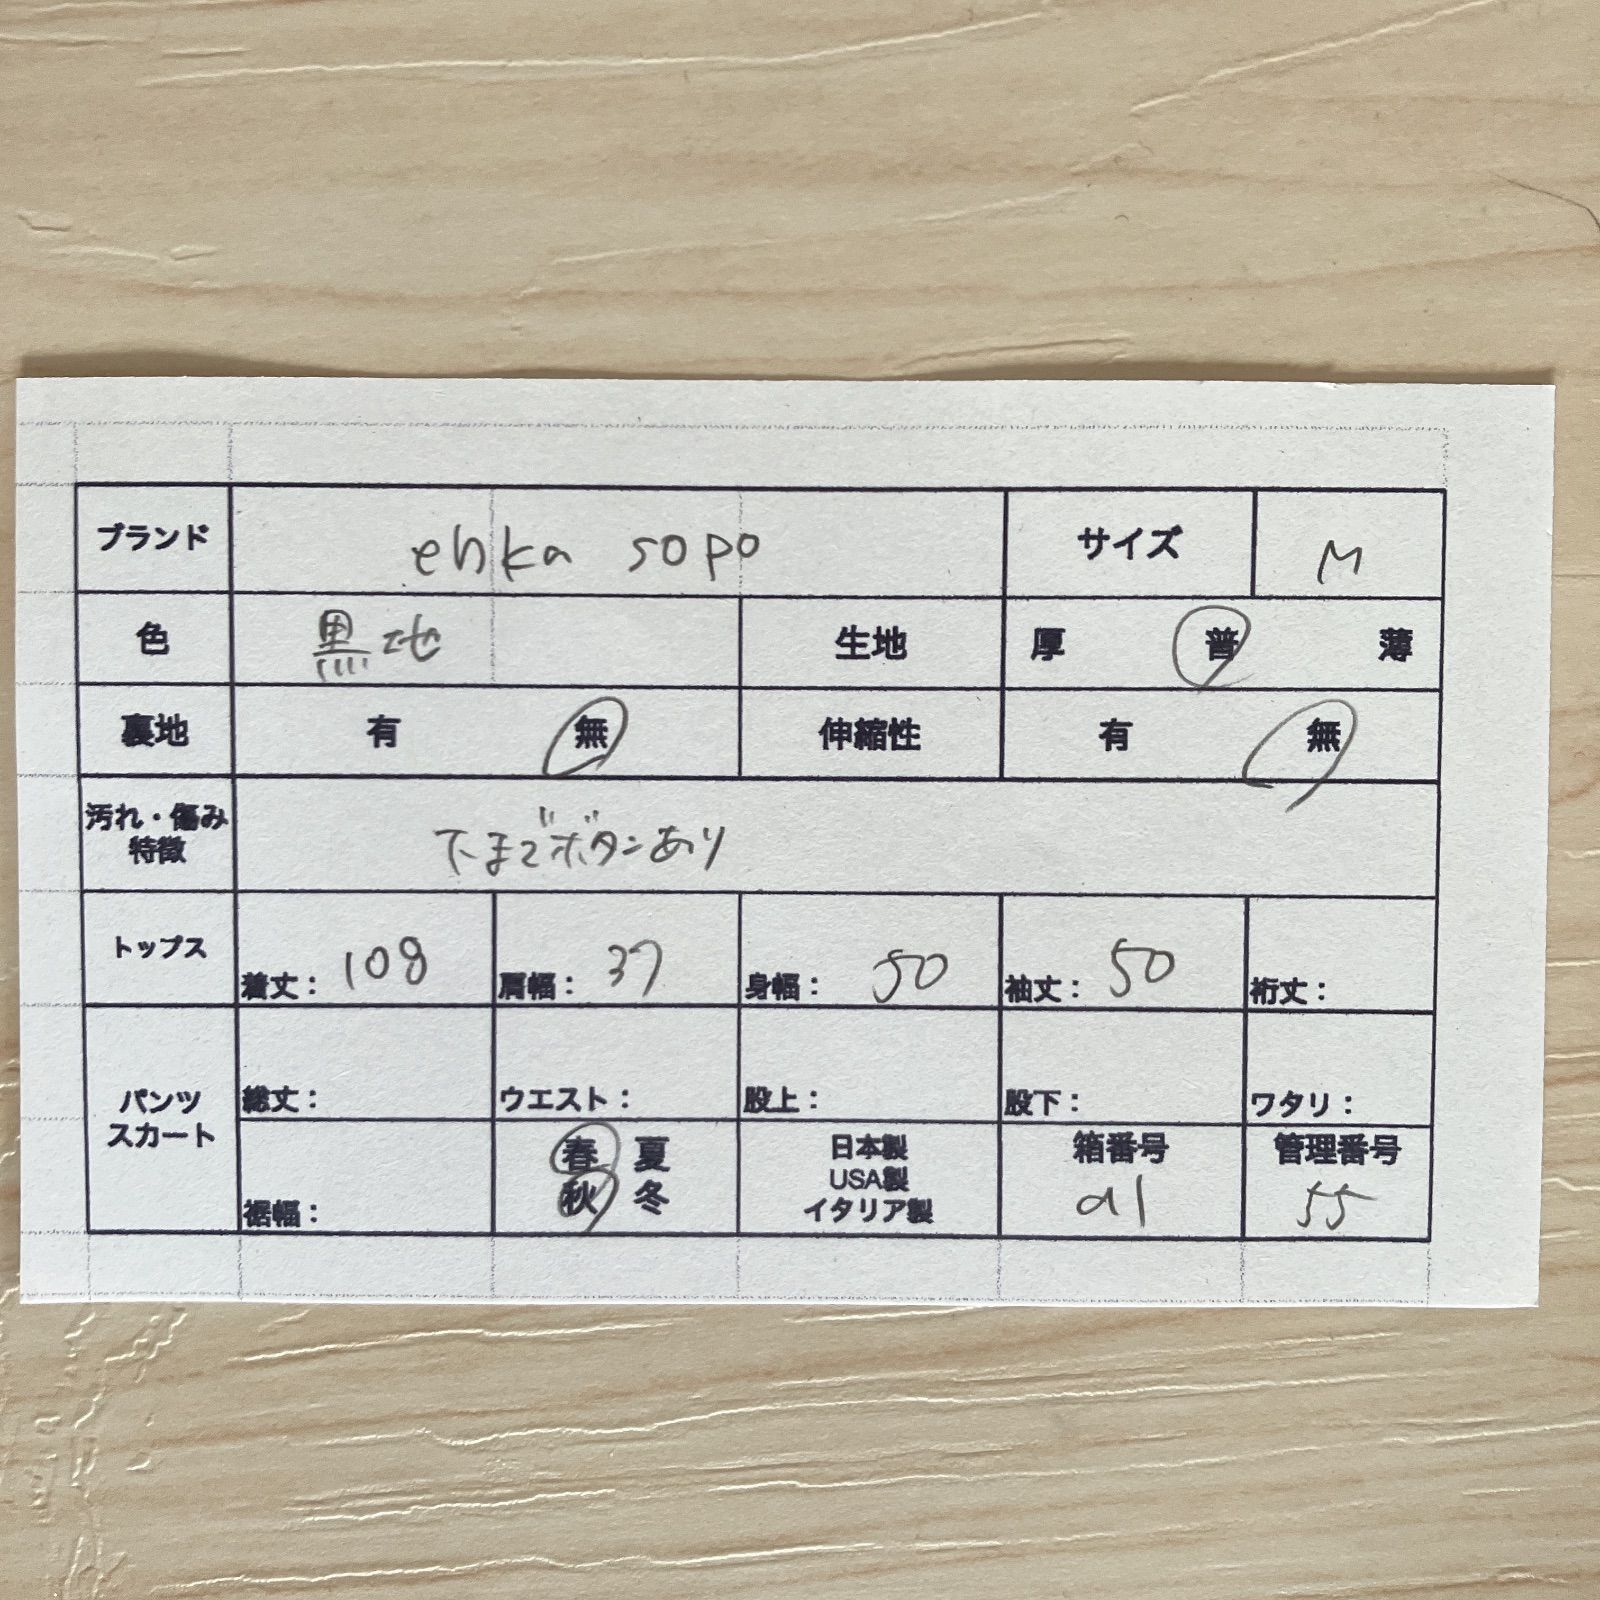 ブランド ehka sopo サイズ M
色 黒地 生地 厚 普 薄
裏地 有 無 伸縮性 有 無
汚れ・傷み
特徴
下までボタンあり
トップス 着丈： 108 肩幅： 37 身幅： 50 袖丈： 50 裄丈：
パンツ
スカート
総丈： ウエスト： 股上： 股下： ワタリ：
裾幅：
春 夏
秋 冬
日本製
USA製
イタリア製
箱番号
a1
管理番号
55